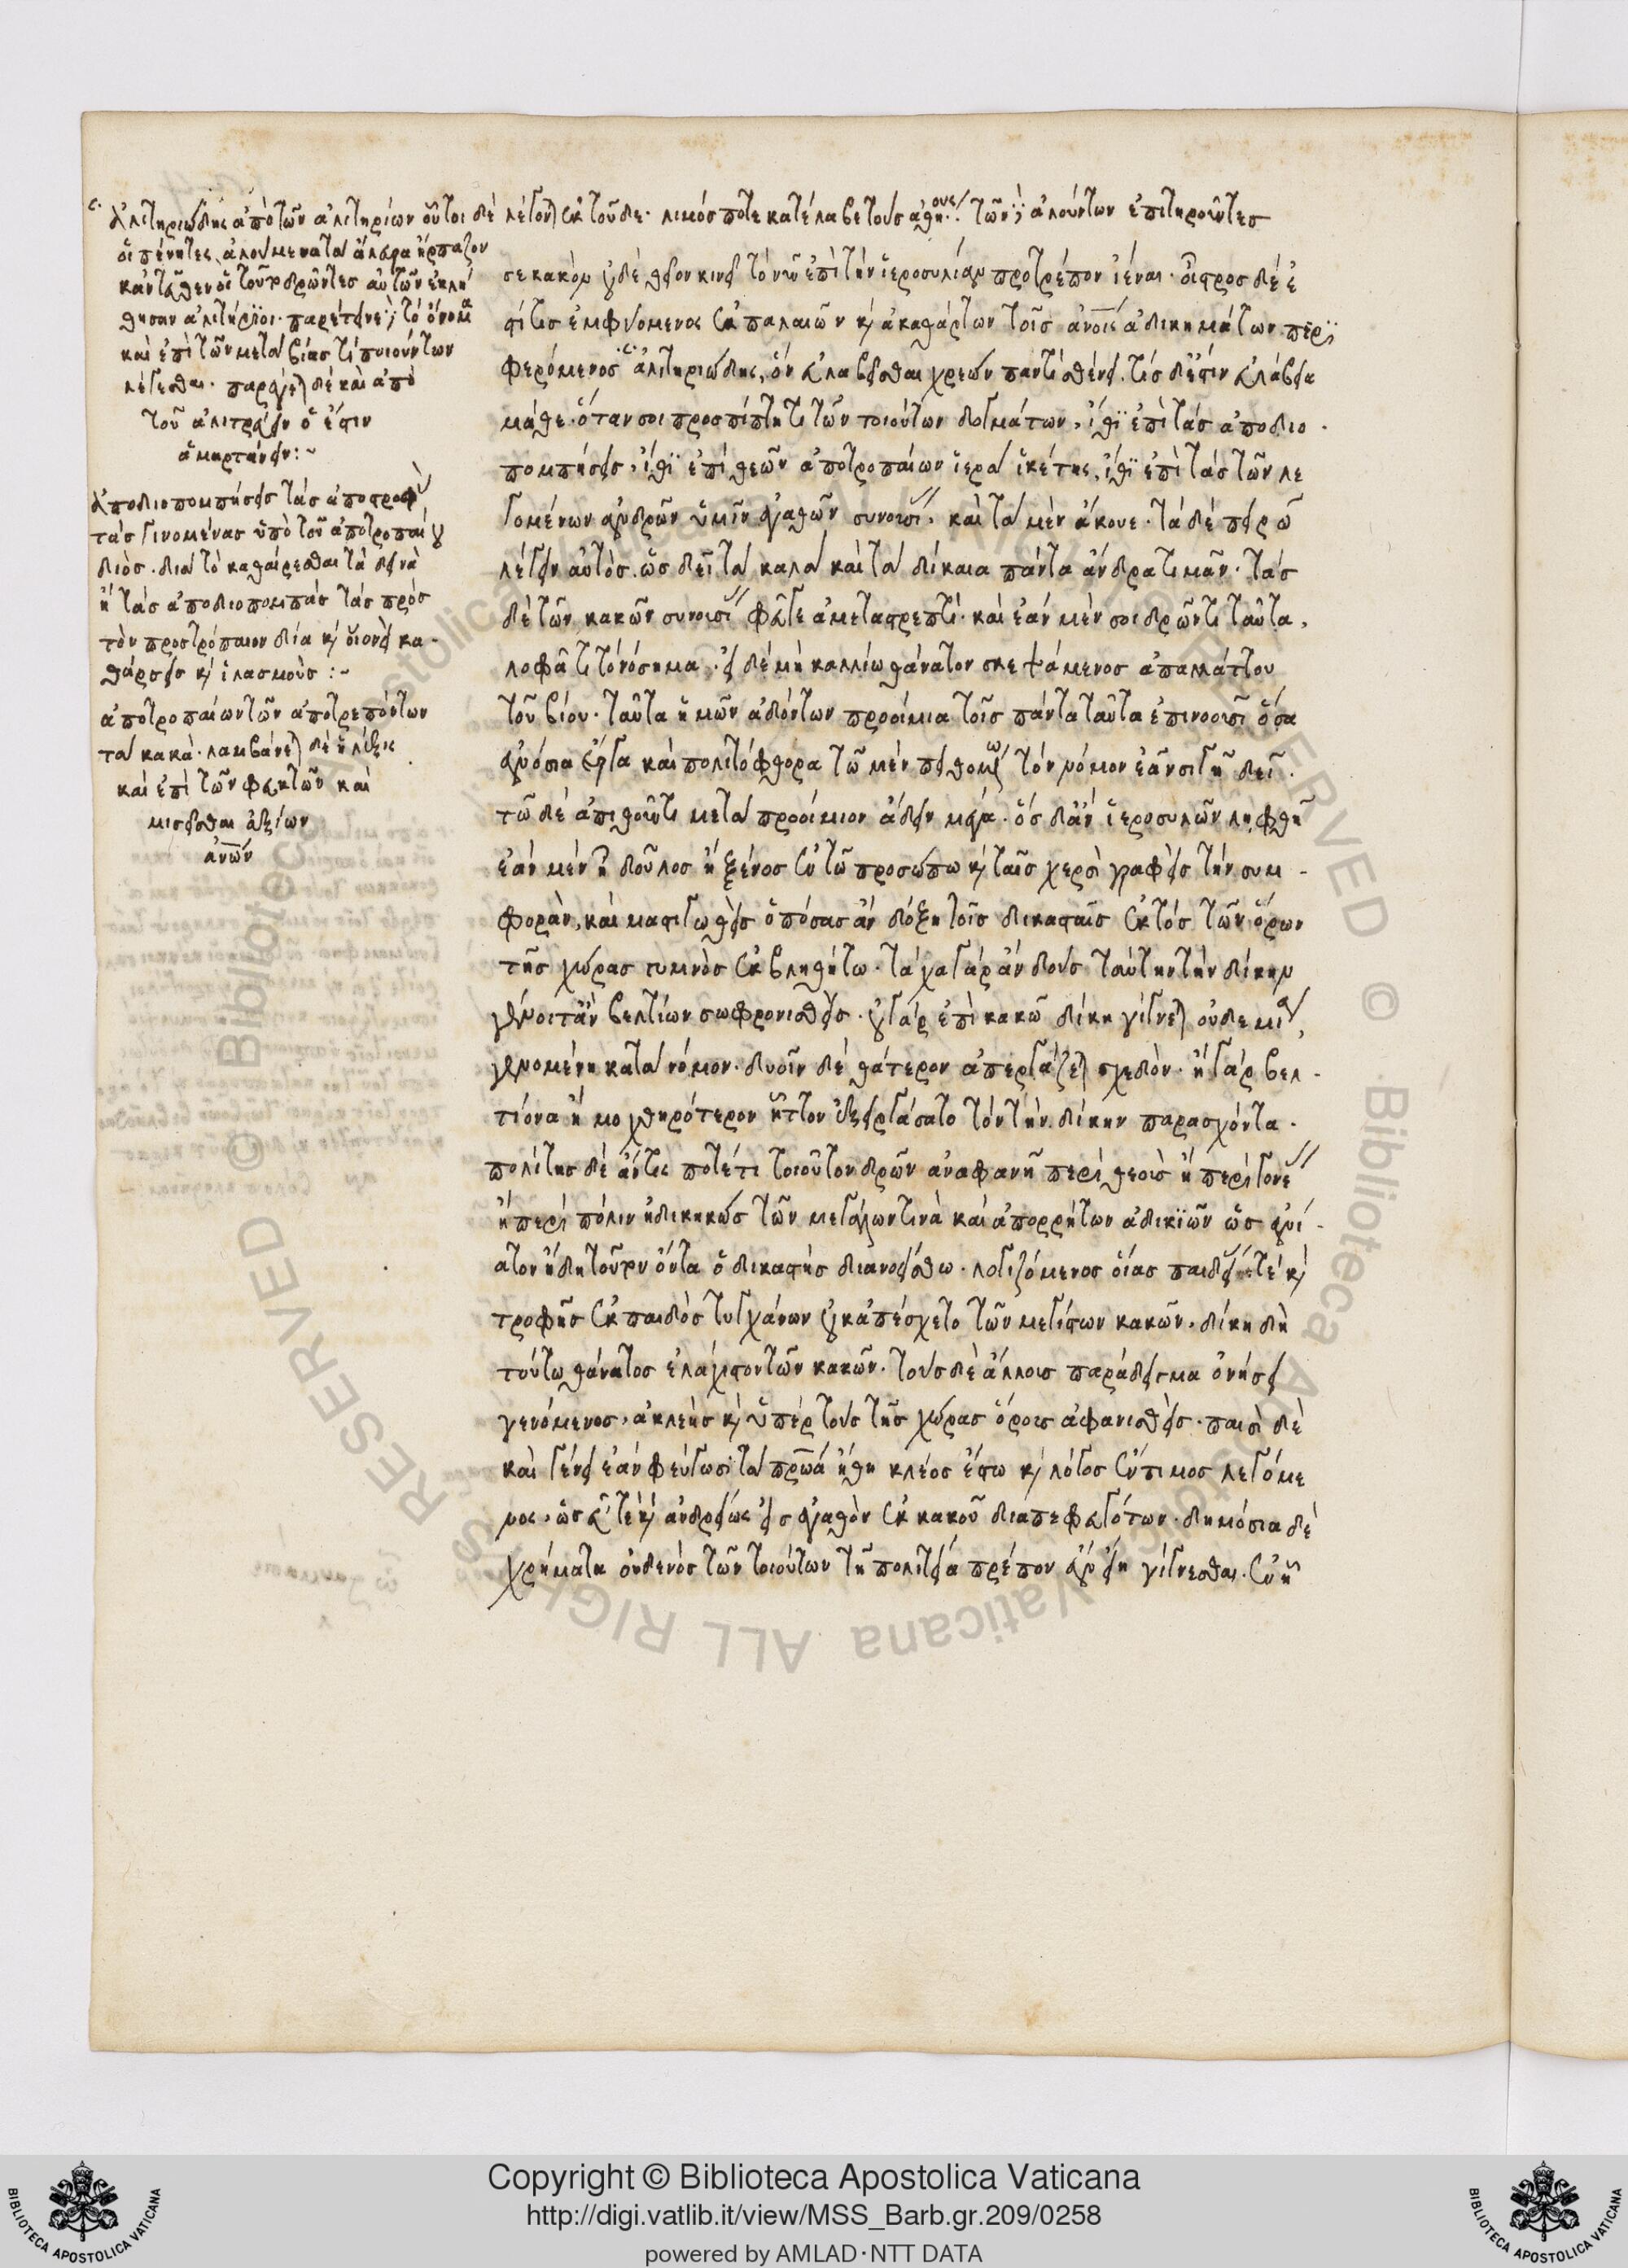 ἀλιτηριώδης ἀπὸ τῶν ἀλιτηρίων οὗτοι δὲ λέγονται ἐκ τοῦδε· λιμός ποτε κατέλαβε τοὺς ἀθηναίους· τῶν γὰρ ἀλούντων ἐπιτηροῦντες
οἱ πένητες ἀλούμενα τὰ ἄλευρα ἥρπαζον
κἀντεῦθεν οἱ τοῦτο δρῶντες αὐτῶν ἐκλή
θησαν ἀλιτήριοι· παρέτεινε γὰρ τὸ ὄνομα
καὶ ἐπὶ τῶν μετὰ βίας τι ποιούντων
λέγεσθαι· παράγεται δὲ καὶ ἀπὸ
τοῦ ἀλιτραίνειν ὅ ἐστιν
ἁμαρτάνειν:~
ἀποδιοπομπήσεις τὰς ἀποστροφὰς
τὰς γινομένας ὑπὸ τοῦ ἀποτροπαίου
διός· διὰ τὸ καθαίρεσθαι τὰ δεινὰ
ἢ τὰς ἀποδιοπομπὰς τὰς πρὸς
τὸν προστρόπαιον δία καὶ οἱονεὶ κα-
θάρσεις καὶ ἱλασμούς:~
ἀποτροπαίων τῶν ἀποτρεπόντων
τὰ κακά· λαμβάνεται δὲ ἡ λέξις
καὶ ἐπὶ τῶν φευκτῶν καὶ
μισεῖσθαι ἀξίων
ἀνων
σε κακὸν οὐδὲ θεῖον κινεῖ τὸ νῦν ἐπὶ τὴν ἱεροσυλίαν προτρέπον ἰέναι· οἶστρος δέ
στίς ἐμφυόμενος ἐκ παλαιῶν καὶ ἀκαθάρτων τοῖς ἀνοις ἀδικημάτων περι
φερόμενος ἀλιτηριώδης, ὃν εὐλαβεῖσθαι χρεὼν παντὶ σθένει. τίς δ' ἐστὶν εὐλάβεια
μάθε. ὅταν σοι προσπίπτῃ τι τῶν τοιούτων δογμάτων, ἴθι ἐπὶ τὰς ἀποδιο-
πομπήσεις, ἴθι ἐπὶ θεῶν ἀποτροπαίων ἱερὰ ἱκέτης, ἴθι ἐπὶ τὰς τῶν λε
γομένων ἀνδρῶν ὑμῖν ἀγαθῶν συνουσίας, καὶ τὰ μὲν ἄκουε· τὰ δὲ πειρῶ
λέγειν αὐτός. ὡς δεῖ τὰ καλὰ καὶ τὰ δίκαια πάντα ἄνδρα τιμᾶν· τὰς
δὲ τῶν κακῶν συνουσίας φεῦγε ἀμεταστρεπτί· καὶ ἐὰν μέν σοι δρῶντι ταῦτα,
λοφᾷ τι τὸ νόσημα. εἰ δὲ μὴ καλλίω θάνατον σκεψάμενος ἀπαλλάττου
τοῦ βίου· ταῦτα ἡμῶν ἀδόντων προοίμια τοῖς πάντα ταῦτα ἐπινοοῦσι ὅσα
ἀνόσια ἔργα καὶ πολιτόφθορα τῷ μὲν πειθομένῳ τὸν νόμον ἐᾶν σιγῇ δεῖ·
τῷ δὲ ἀπιθοῦντι μετὰ προοίμιον ἄδειν μέγα· ὃς δ' ἂν ἱεροσυλῶν ληφθῇ
ἐὰν μὲν ᾖ δοῦλος ἢ ξένος ἐν τῷ προσώπῳ καὶ ταῖς χερσὶ γραφεὶς τὴν συμ-
φοράν, καὶ μαστιγωθεὶς ὁπόσας ἂν δόξῃ τοῖς δικασταῖς ἐκτὸς τῶν ὅρων
τῆς χώρας γυμνὸς ἐκβληθήτω· τάχα γὰρ ἂν δοὺς ταύτην τὴν δίκην
γένοιτ' ἂν βελτίων σωφρονισθείς· οὐ γὰρ ἐπὶ κακῷ δίκη γίγνεται οὐδεμία,
γενομένη κατὰ νόμον· δυοῖν δὲ θάτερον ἀπεργάζεται σχεδόν· ἢ γὰρ βελ-
τίονα ἢ μοχθηρότερον ἧττον ἐξειργάσατο τὸν τὴν δίκην παρασχόντα·
πολίτης δὲ ἄν τις ποτέ τι τοιοῦτον δρῶν ἀναφανῇ περὶ θεοὺς ἢ περὶ γονέας
ἢ περὶ πόλιν ἠδικηκὼς τῶν μεγάλων τινὰ καὶ ἀπορρήτων ἀδικιῶν ὡς ἀνί-
ατον ἤδη τοῦτον ὄντα ὁ δικαστὴς διανοείσθω· λογιζόμενος οἵας παιδείας τε καὶ
τροφῆς ἐκ παιδὸς τυγχάνων οὐκ ἀπέσχετο τῶν μεγίστων κακῶν. δίκη δὴ
τούτῳ θάνατος ἐλάχιστον τῶν κακῶν. τοὺς δὲ ἄλλους παράδειγμα ὀνήσει
γενόμενος, ἀκλεὴς καὶ ὑπὲρ τοὺς τῆς χώρας ὅρους ἀφανισθείς· παισὶ δὲ
καὶ γένει ἐὰν φεύγωσι τὰ πρωά ἤθη κλέος ἔστω καὶ λόγος ἔντιμος λεγόμε
νος, ὡς εὖ τε καὶ ἀνδρείως εἰς ἀγαθὸν ἐκ κακοῦ διαπεφευγότων. δημόσια δὲ
χρήματα οὐδενὸς τῶν τοιούτων τῇ πολιτείᾳ πρέπον ἂν εἴη γίγνεσθαι. ἐν ᾗ
Copyright © Biblioteca Apostolica Vaticana
http://digi.vatlib.it/view/MSS_Barb.gr.209/0258
powered by AMLAD·NTT DATA